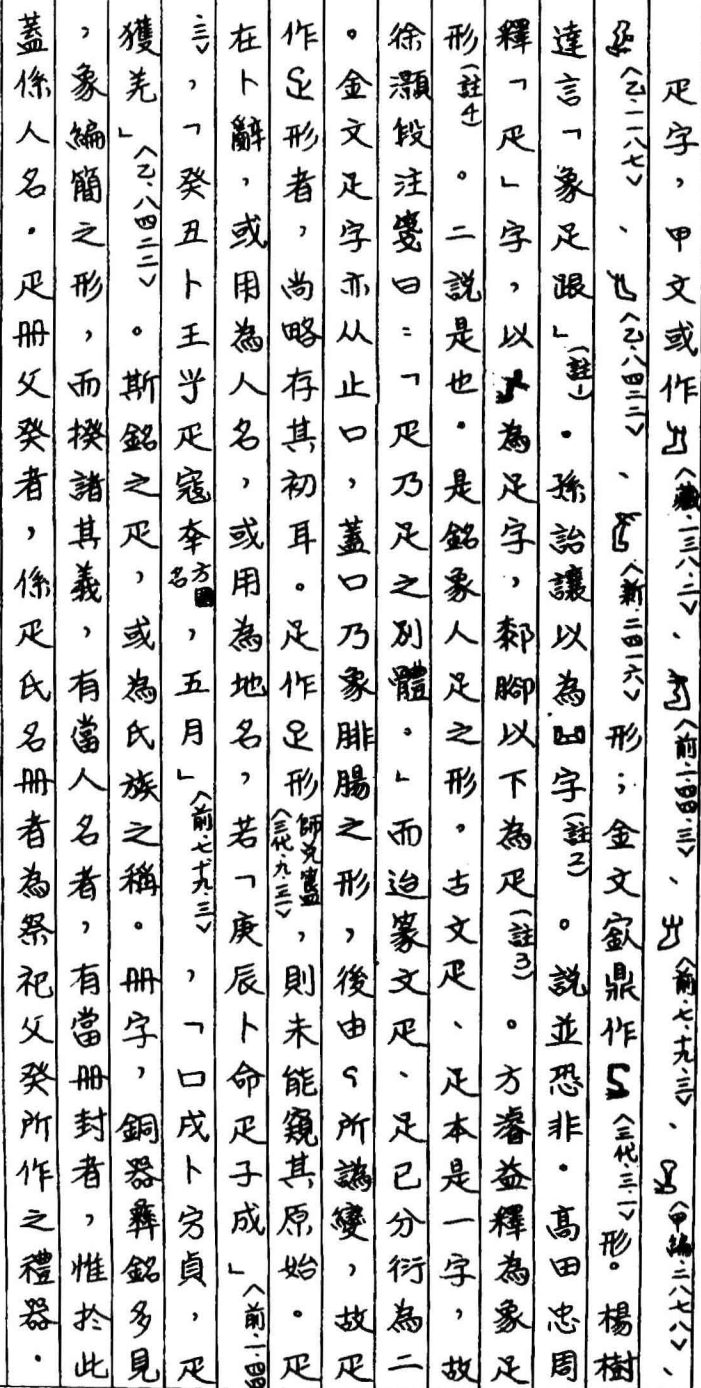 疋字，甲文或作〈藏·一三八·二〉、〈前·一·四四·三〉、〈前·七·十九·三〉、〈甲編·二八七八〉、
〈乙·一一八七〉、〈乙·八四二二〉、〈新·二四一六〉形；金文㝬鼎作〈三代·三·一〉形。楊樹
達言「象足跟」(註1)。孫詒讓以為字(註2)。說並恐非。高田忠周
釋「疋」字，以為足字，郗腳以下為疋(註3)。方濬益釋為象足
形(註4)。二說是也。是銘象人足之形。古文疋、足本是一字，故
徐灝段注箋曰：「疋乃足之別體。」而迨篆文疋、足已分衍為二
。金文足字亦从止口，蓋口乃象腓腸之形，後由所譌變，故疋
作形者，尚略存其初耳。足作形師兌簋〈三代·九·三一〉，則未能窺其原始。疋
在卜辭，或用為人名，或用為地名，若「庚辰卜命疋子成」〈前·一·四四
·三〉，「癸丑卜王疋寇奎方國名，五月」〈前·七·十九·三〉，「口戌卜㱿貞，疋
獲羌」〈乙·八四二二〉。斯銘之疋，或為氏族之稱。冊字，銅器彝銘多見
，象編簡之形，而揆諸其義，有當人名者，有當冊封者，惟於此
蓋係人名。疋冊父癸者，係疋氏名冊者為祭祀父癸所作之禮器。